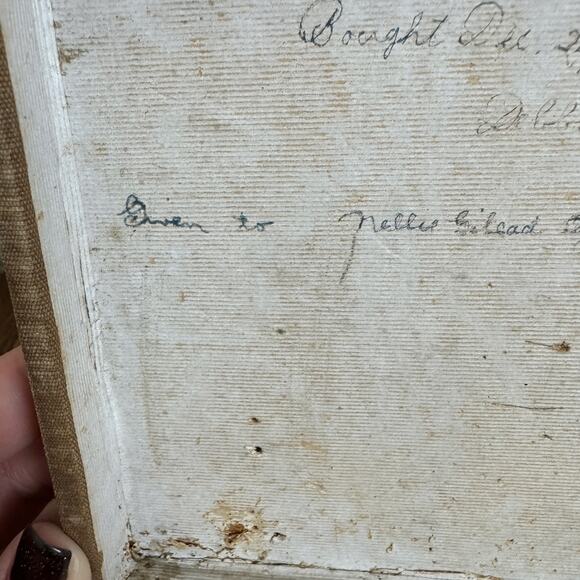 Bought Dec. 2
Given to Nellie Gilead